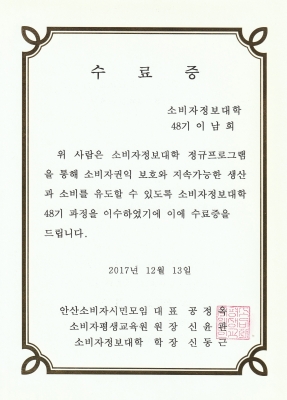 수 료 증
소비자정보대학
48기 이 남 희
위 사람은 소비자정보대학 정규프로그램
을 통해 소비자권익 보호와 지속가능한 생산
과 소비를 유도할 수 있도록 소비자정보대학
48기 과정을 이수하였기에 이에 수료증을
드립니다.
2017년 12월 13일
안산소비자시민모임 대 표 공 정 옥
소비자평생교육원 원 장 신 윤 관
소비자정보대학 학 장 신 동 근